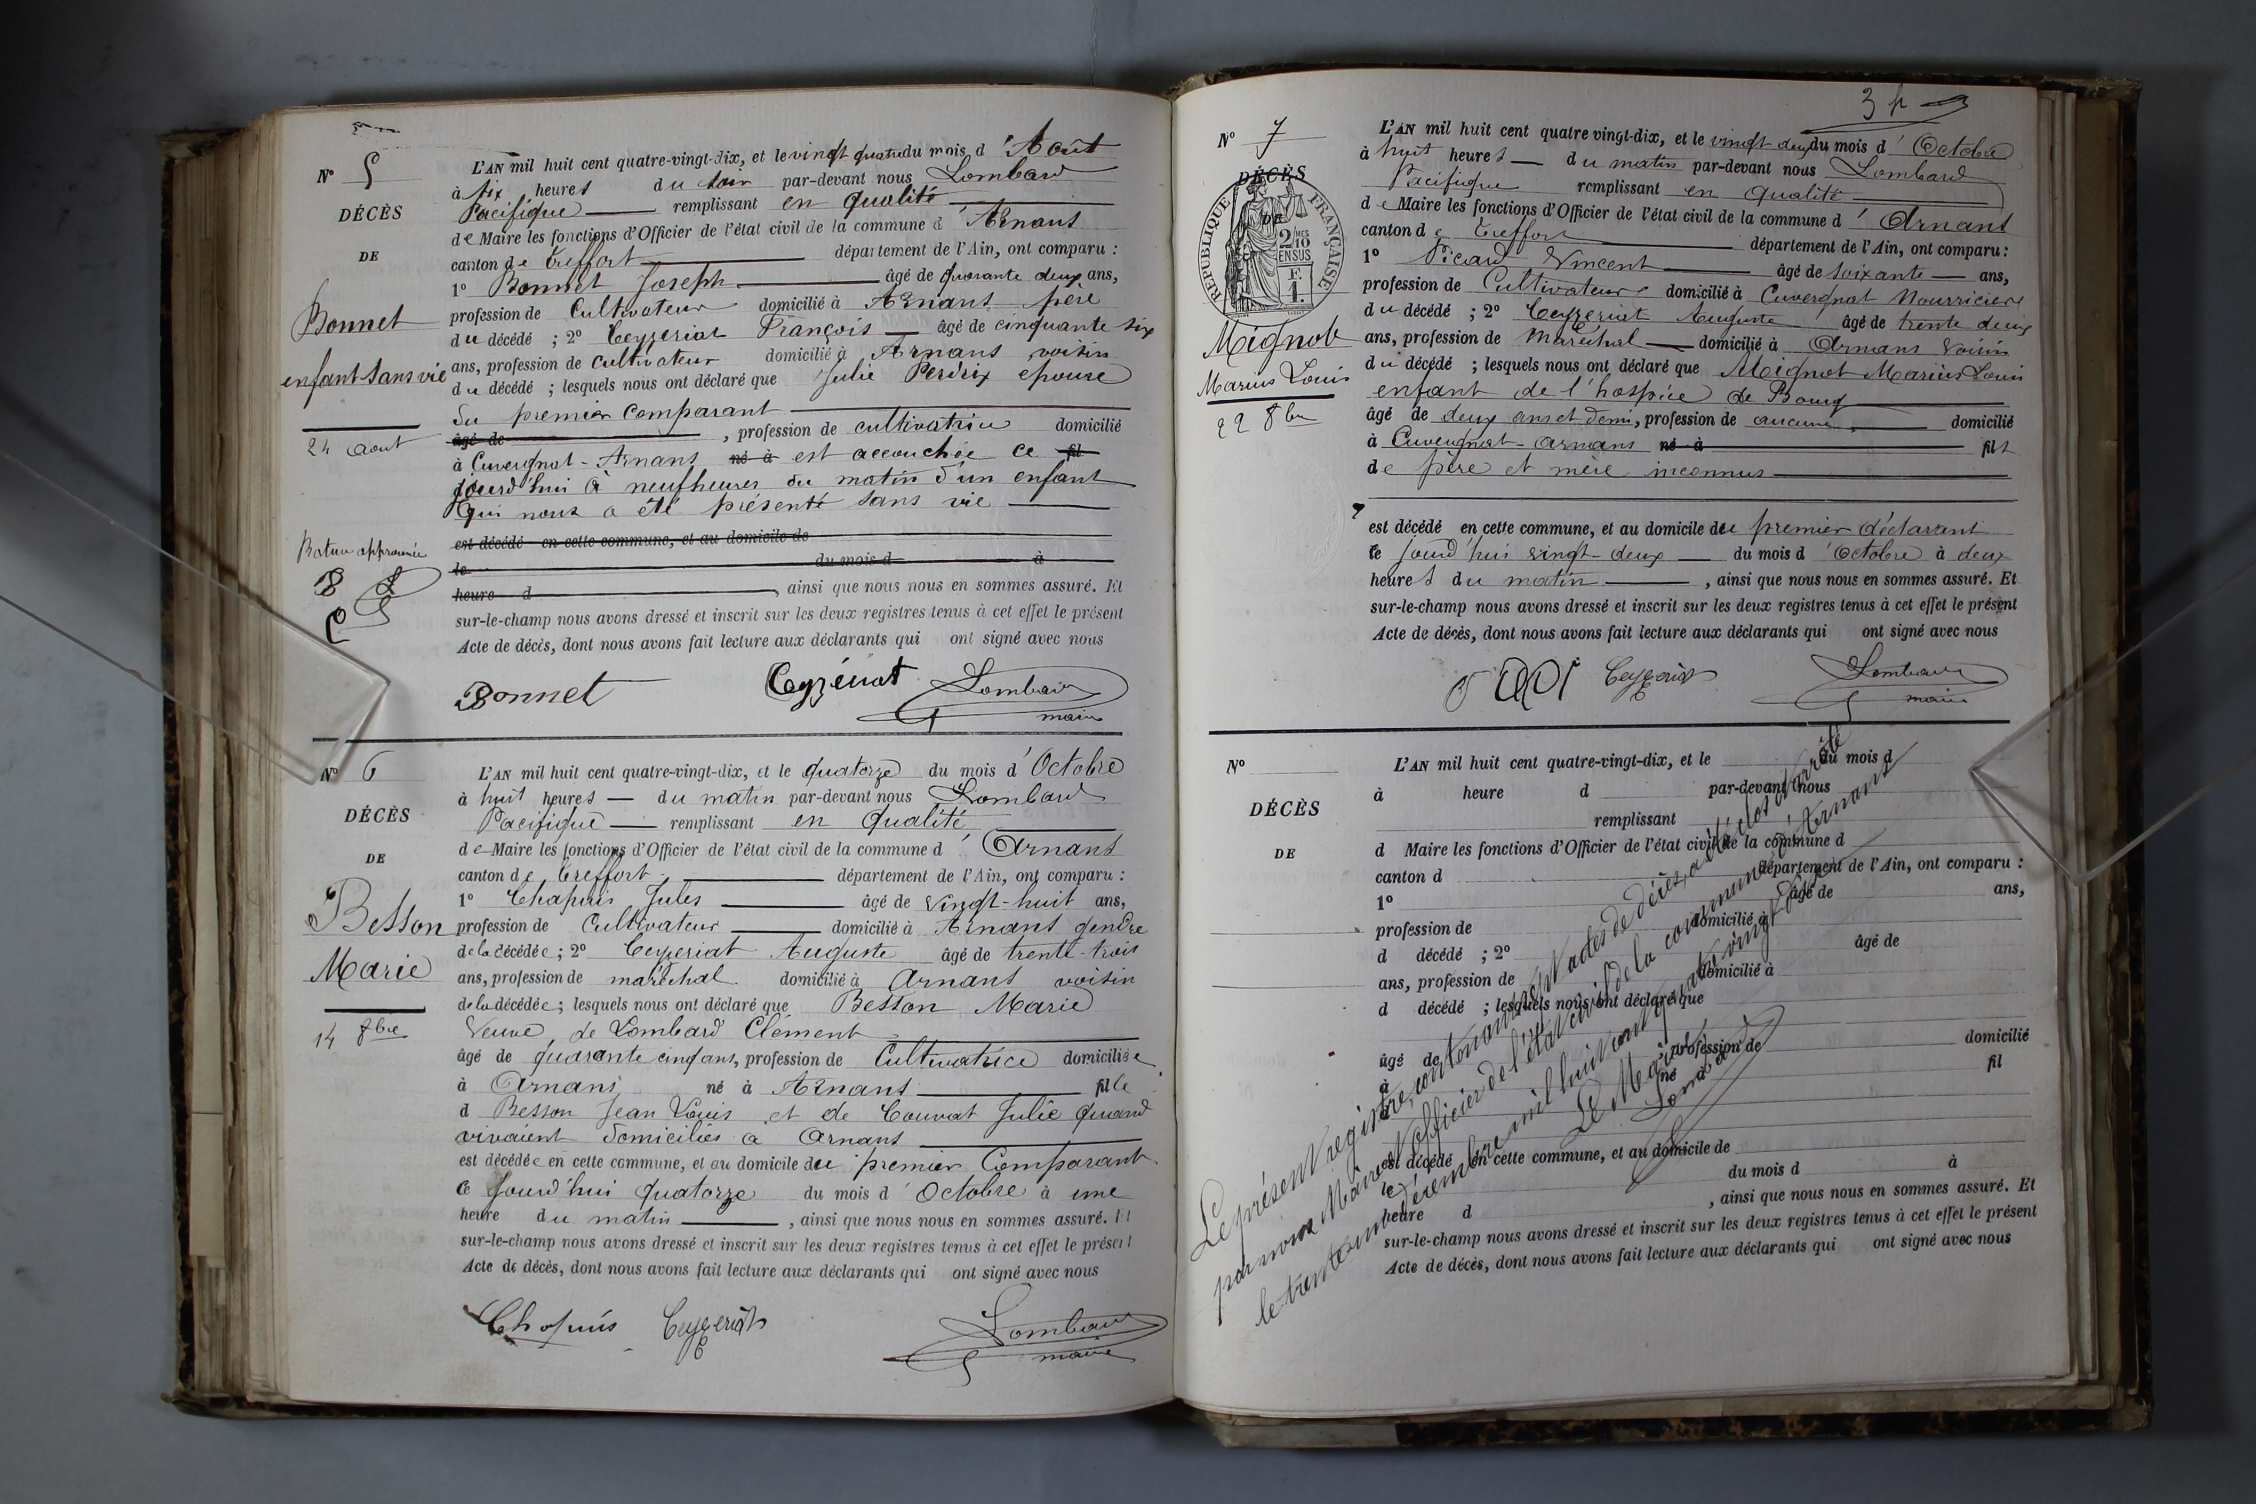 N° 5
DÉCÈS
DE
Bonnet
enfant sans vie
24 Aout
Rature approuvée
L'AN mil huit cent quatre-vingt-dix, et le vingt quatre du mois d'Aout
à six heures du soir par-devant nous Lombard
Pacifique remplissant en qualité
de Maire les fonctions d'Officier de l'état civil de la commune d'Arnans
canton de Treffort département de l'Ain, ont comparu :
1° Bonnet Joseph âgé de quarante deux ans,
profession de Cultivateur domicilié à Arnans père
du décédé ; 2° Ceyzeriat François âgé de cinquante six
ans, profession de cultivateur domicilié à Arnans voisin
du décédé ; lesquels nous ont déclaré que Julie Perdrix epouse
du premier comparant
âgé de , profession de cultivatrice domicilié
à Cuvergnat-Arnans né à est accouchée ce fil
jourd'hui à neuf heures du matin d'un enfant
qui nous a été présenté sans vie
est décédé en cette commune, et au domicile de
le du mois d à
heure d , ainsi que nous nous en sommes assuré. Et
sur-le-champ nous avons dressé et inscrit sur les deux registres tenus à cet effet le présent
Acte de décès, dont nous avons fait lecture aux déclarants qui ont signé avec nous
Bonnet Ceyzériat Lombard
maire
N° 6
DÉCÈS
DE
Besson
Marie
14 8bre
L'AN mil huit cent quatre-vingt-dix, et le quatorze du mois d'Octobre
à huit heures du matin par-devant nous Lombard
Pacifique remplissant en Qualité
de Maire les fonctions d'Officier de l'état civil de la commune d'Arnans
canton de Treffort département de l'Ain, ont comparu :
1° Chapuis Jules âgé de vingt-huit ans,
profession de Cultivateur domicilié à Arnans gendre
de la décédée ; 2° Ceyzeriat Auguste âgé de trente-trois
ans, profession de maréchal domicilié à Arnans voisin
de la décédée ; lesquels nous ont déclaré que Besson Marie
Veuve de Lombard Clément
âgé de quarante cinq ans, profession de Cultivatrice domiciliée
à Arnans né à Arnans fille
d Besson Jean Louis et de Couvat Julie quand
vivaient domiciliés a Arnans
est décédée en cette commune, et au domicile du premier Comparant
ce jourd'hui quatorze du mois d'Octobre à une
heure du matin , ainsi que nous nous en sommes assuré. Et
sur-le-champ nous avons dressé et inscrit sur les deux registres tenus à cet effet le présent
Acte de décès, dont nous avons fait lecture aux déclarants qui ont signé avec nous
Chapuis Ceyzeriat Lombard
maire
N° 7
DÉCÈS
DE
RÉPUBLIQUE FRANÇAISE
2/10 EN SUS
F. 1.
Mignot
Marius Louis
22 8bre
L'AN mil huit cent quatre vingt-dix, et le vingt deux du mois d'Octobre
à huit heures du matin par-devant nous Lombard
Pacifique remplissant en qualité
de Maire les fonctions d'Officier de l'état civil de la commune d'Arnans
canton de Treffort département de l'Ain, ont comparu :
1° Picard Vincent âgé de soixante ans,
profession de Cultivateur domicilié à Cuvergnat Nourricier
du décédé ; 2° Ceyzeriat Auguste âgé de trente deux
ans, profession de maréchal domicilié à Arnans voisin
du décédé ; lesquels nous ont déclaré que Mignot Marius Louis
enfant de l'hospice de Bourg
âgé de deux ans et demi, profession de aucune domicilié
à Cuvergnat-Arnans né à fils
de père et mère inconnus
est décédé en cette commune, et au domicile du premier déclarant
ce jourd'hui vingt-deux du mois d'Octobre à deux
heures du matin , ainsi que nous nous en sommes assuré. Et
sur-le-champ nous avons dressé et inscrit sur les deux registres tenus à cet effet le présent
Acte de décès, dont nous avons fait lecture aux déclarants qui ont signé avec nous
Ceyzeriat Lombard
maire
N°
DÉCÈS
DE
L'AN mil huit cent quatre-vingt-dix, et le du mois d
à heure d par-devant nous
remplissant
d Maire les fonctions d'Officier de l'état civil de la commune d
canton d département de l'Ain, ont comparu :
1° âgé de ans,
profession de domicilié à
d décédé ; 2° âgé de
ans, profession de domicilié à
d décédé ; lesquels nous ont déclaré que
âgé de profession de domicilié
à né à fil
d
est décédé en cette commune, et au domicile de
le du mois d à
heure d , ainsi que nous nous en sommes assuré. Et
sur-le-champ nous avons dressé et inscrit sur les deux registres tenus à cet effet le présent
Acte de décès, dont nous avons fait lecture aux déclarants qui ont signé avec nous
Le présent registre, contenant sept actes de décès, a été clos et arrêté
par nous Maire et officier de l'état civil de la commune d'Arnans
le trente un décembre mil huit cent quatre vingt dix
Le Maire
Lombard